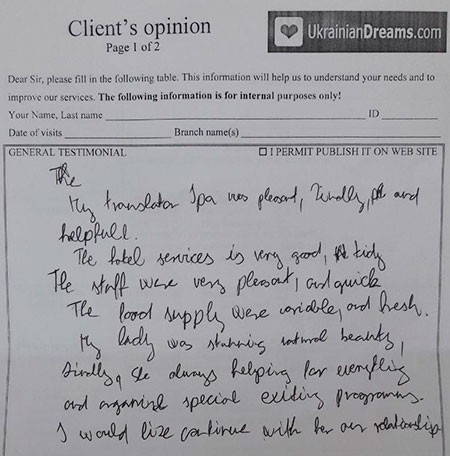 Client's opinion
Page 1 of 2
UkrainianDreams.com
Dear Sir, please fill in the following table. This information will help us to understand your needs and to
improve our services. The following information is for internal purposes only!
Your Name, Last name ID
Date of visits Branch name(s)
GENERAL TESTIMONIAL ☐ I PERMIT PUBLISH IT ON WEB SITE
The
My translator was pleasant, and
helpfull.
The hotel services is very good, tidy
The staff were very pleasant, and quick
The food supply were variable, and fresh.
My lady was stunning natural beauty,
she always helping for everything
and special exiting programms.
I would like continue with her our relationship